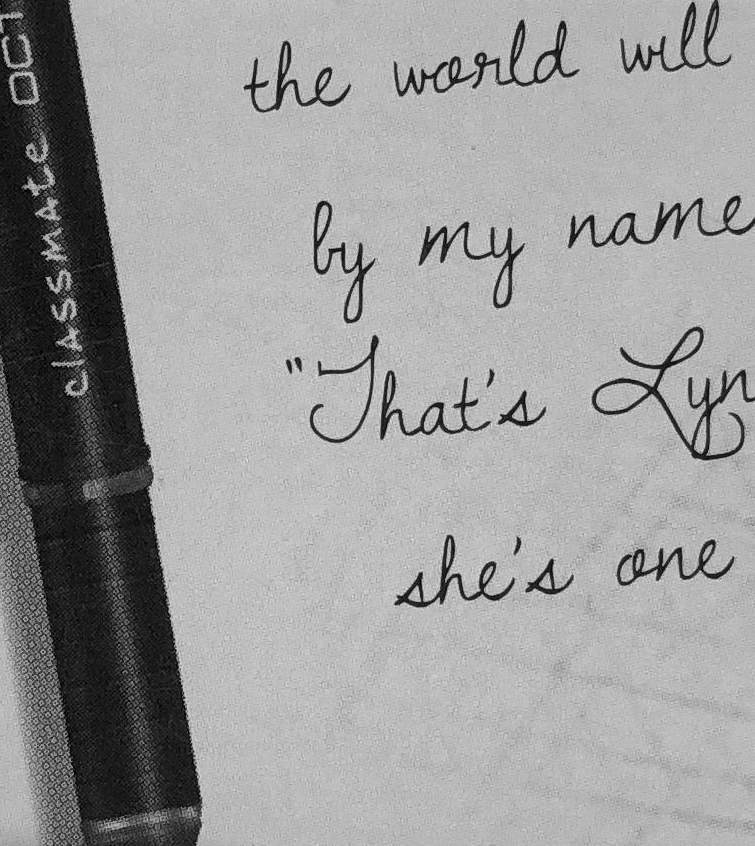 classmate OCT
the world will
by my name
"That's Lyn
she's one